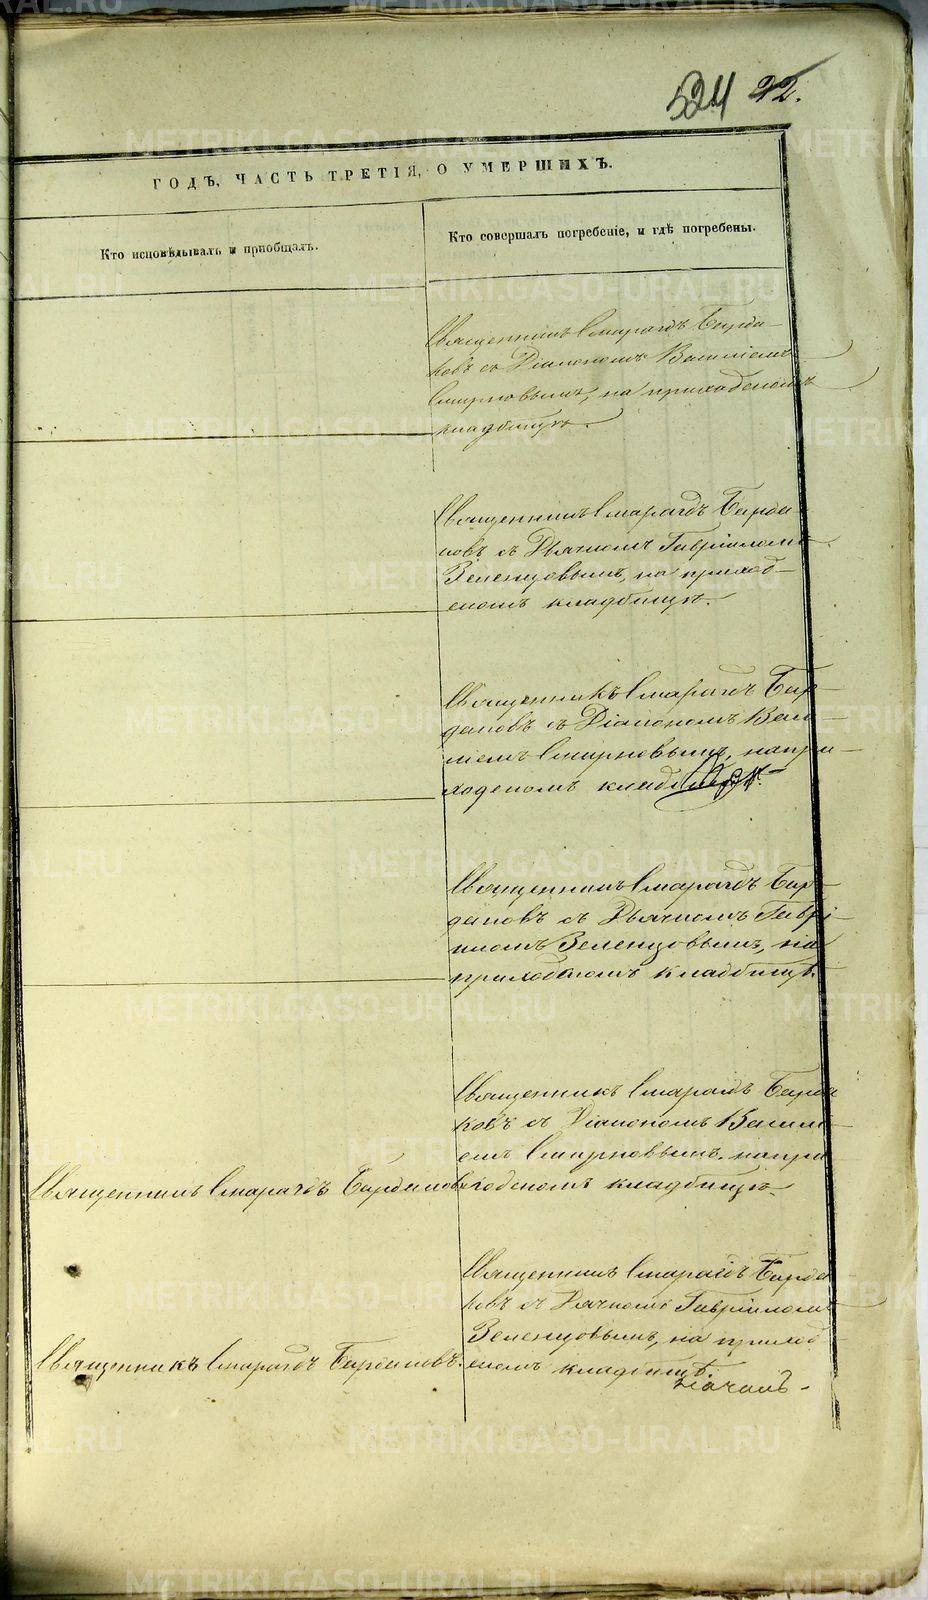 524 22.
ГОДЪ, ЧАСТЬ ТРЕТІЯ, О УМЕРШИХЪ.
Кто исповѣдывалъ и приобщалъ.
Кто совершалъ погребеніе, и гдѣ погребены.
Священникъ Смарагдъ Бирда-
ковъ съ Діакономъ Василіемъ
Смирновымъ, на приходскомъ
кладбищѣ.
Священникъ Смарагдъ Бирда-
ковъ съ Дьячкомъ Гавріиломъ
Зеленцовымъ, на приход-
скомъ кладбищѣ.
Священникъ Смарагдъ Бир-
даковъ съ Діакономъ Васи-
ліемъ Смирновымъ, на при-
ходскомъ кладбищѣ.
Священникъ Смарагдъ Бир-
даковъ съ Дьячкомъ Гаврі-
иломъ Зеленцовымъ, на
приходскомъ кладбищѣ.
Священникъ Смарагдъ Бирда
ковъ съ Діакономъ Васили-
емъ Смирновымъ, на при
ходскомъ кладбищѣ.
Священникъ Смарагдъ Бирдаковъ
Священникъ Смарагдъ Бирда
ковъ съ Дьячкомъ Гавріиломъ
Зеленцовымъ, на приход-
скомъ кладбищѣ.
Священникъ Смарагдъ Бирдаковъ.